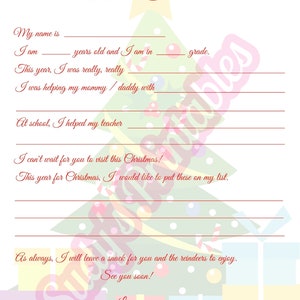 My name is
I am ______ years old and I am in ______ grade.
This year, I was really, really
I was helping my mommy / daddy with
At school, I helped my teacher
I can't wait for you to visit this Christmas!
This year for Christmas, I would like to put these on my list,
As always, I will leave a snack for you and the reindeers to enjoy.
See you soon!